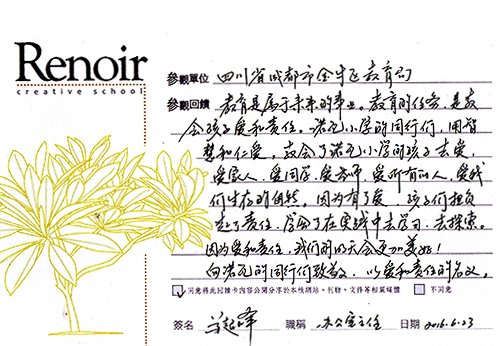 Renoir
creative school
參觀單位 四川省成都市金牛区教育局
參觀回饋 教育是属于未来的事业。教育的任务,是教
会孩子爱和责任。诺瓦小学的同行们,用智
慧和仁爱,教会了诺瓦小学的孩子去爱,
爱家人、爱同学、爱老师、爱所有的人、爱我
们生存的自然。因为有了爱,孩子们担负
起了责任,学会了在实践中去学习、去探索。
因为爱和责任,我们的明天会更加美好!
向诺瓦的同行们致敬,以爱和责任的名义。
同意將此回饋卡內容公開分享於本校網站、刊物、文件等相關媒體 不同意
簽名 職稱 办公室主任 日期 2016.6.23